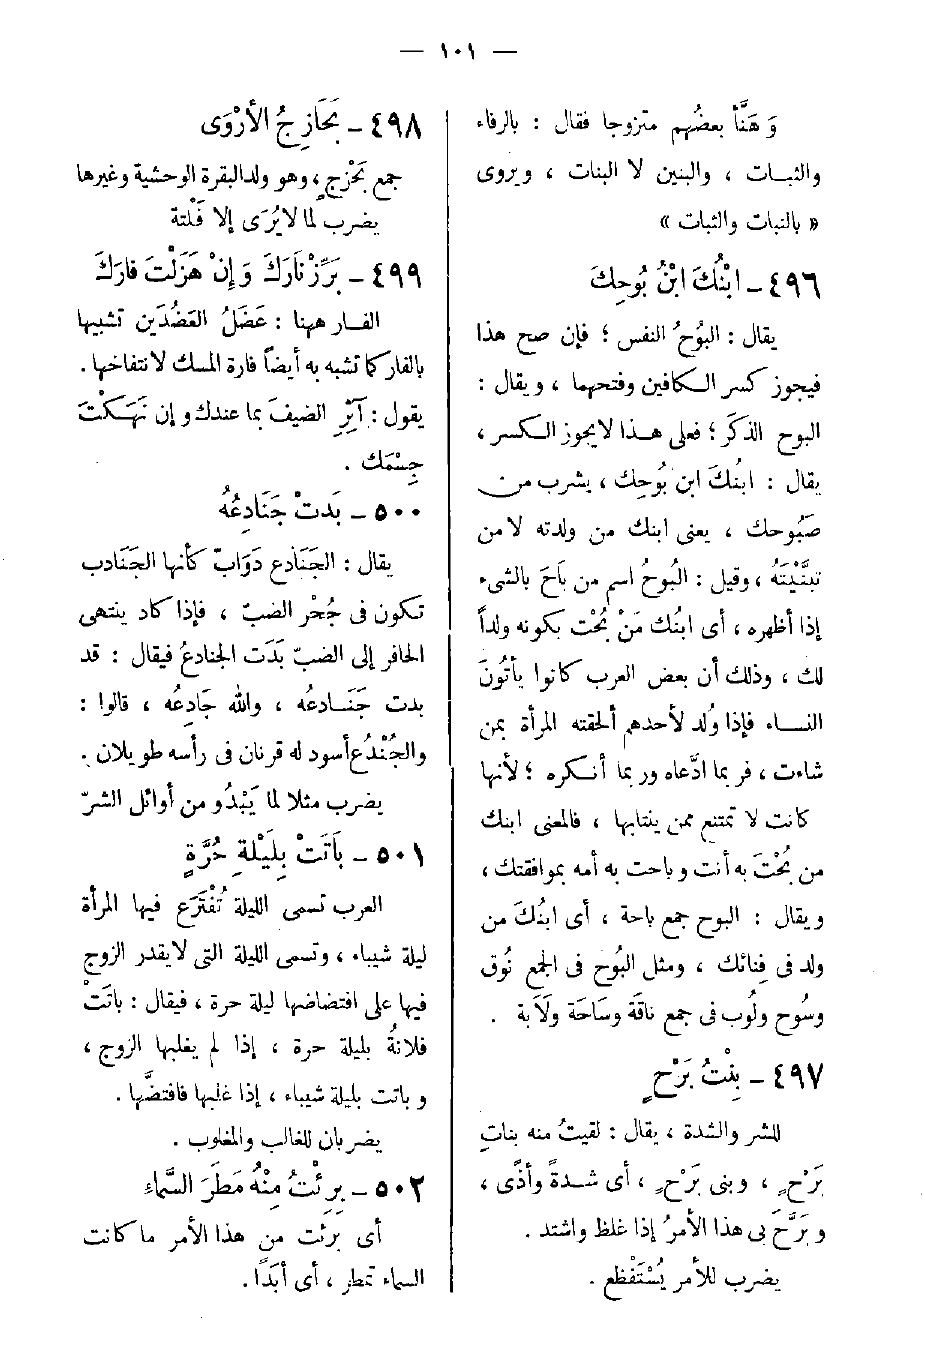 — ١٠١ —
وَهَنَّأ بعضُهم متزوجا فقال : بالرفاء
والثبـات ، والبنين لا البنات ، ويروى
« بالنبات والثبات »
٤٩٦ – ابْنُكَ ابْنُ بُوحِكَ
يقال : البُوحُ النفس ؛ فإن صح هذا
فيجوز كسر الـكافين وفتحهما ، ويقال :
البوح الذكَر ؛ فعلى هـذا لايجوز الـكسر ،
يقال : ابنُكَ ابن بُوحِك ، يشرب من
صَبُوحك ، يعنى ابنك من ولدته لا من
تبنَّيْتَه ، وقيل : البُوحُ اسم من بَاحَ بالشىء
إذا أظهره ، أى ابنُك مَنْ بُحْتَ بكونه ولداً
لك ، وذلك أن بعض العرب كانوا يأتُونَ
النسـاء فإذا وُلد لأحدهم ألحقته المرأة بمن
شاءت ، فربما ادَّعاه وربما أنـكره ؛ لأنها
كانت لا تمتنع ممن ينتابها ، فالمعنى ابنك
من بُحْتَ به أنت وباحت به أمه بموافقتك ،
ويقال : البوح جمع باحة ، أى ابنُكَ من
ولد فى فِنائك ، ومثل البُوح فى الجمع نُوق
وسُوح ولُوب فى جمع ناقَة وسَاحَة ولَابَة .
٤٩٧ – بِنْتُ بَرْحٍ
للشر والشدة ، يقال : لقيتُ منه بناتِ
بَرْحٍ ، وبنى بَرْحٍ ، أى شـدةً وأذًى ،
وبَرَّحَ بى هذا الأمرُ إذا غلظ واشتد .
يضرب للأمر يُسْتَفْظع .
٤٩٨ – بَحَازِجُ الأرْوَى
جمع بَحْزجٍ ، وهو ولدالبقرة الوحشية وغيرها
يضرب لما لايُرَى إلا فَلْتة
٤٩٩ – بَرِّزْ نَارَكَ وَإِنْ هَزَلْتَ فارَكَ
الفـار ههنا : عَضَلُ العَضُدَين تشبيها
بالفار كما تشبه به أيضاً فارة المسك لانتفاخها .
يقول : آثِرِ الضيفَ بما عندك وإن نَهَكْتَ
جِسْمَك .
٥٠٠ – بَدتْ جَنَادِعُهُ
يقال : الجَنَادع دَوَابّ كأنها الجَنَادب
تـكون فى جُحْر الضبّ ، فإذا كاد ينتهى
الحافر إلى الضبّ بَدَت الجنادعُ فيقال : قد
بدت جَنَـادعُه ، والله جَادِعُه ، قالوا :
والجُنْدُع أسود له قرنان فى رأسه طويلان .
يضرب مثلا لما يَبْدُو من أوائل الشرّ
٥٠١ – بَاتَتْ بِلَيْلَةِ حُرَّةٍ
العرب تسمى الليلة تُفْتَرَع فيها المرأة
ليلة شيباء ، وتسمى الليلة التى لايقدر الزوج
فيها على افتضاضها ليلة حرة ، فيقال : باتَتْ
فلانةُ بليلة حرة ، إذا لم يغلبها الزوج ،
وباتت بليلة شيباء ، إذا غلبها فافتضَّها .
يضربان للغالب والمغلوب .
٥٠٢ – بَرِئْتُ مِنْهُ مَطَرَ السَّماءِ
أى بَرِئت من هذا الأمر ما كانت
السماء تمطر ، أى أبَدًا .